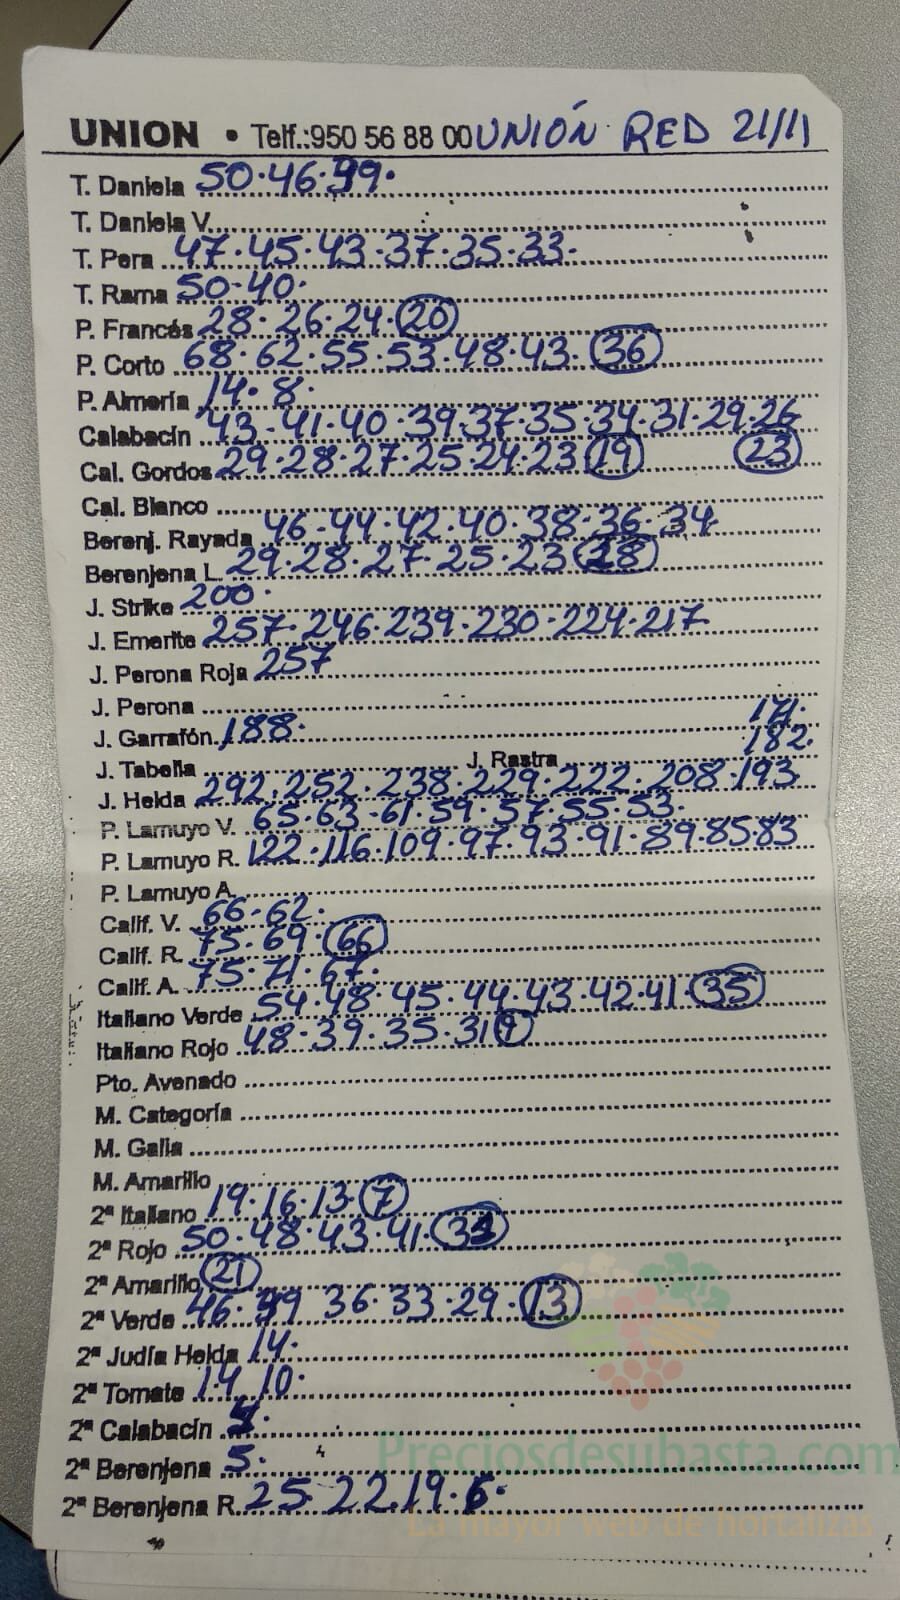 UNION • Telf.:950 56 88 00 UNIÓN RED 21/11
T. Daniela 50·46·39·
T. Daniela V.
T. Pera 47·45·43·37·35·33·
T. Rama 50·40·
P. Francés 28·26·24·20
P. Corto 68·62·55·53·48·43·36
P. Almería 14·8·
Calabacín 43·41·40·39·37·35·34·31·29·26
Cal. Gordos 29·28·27·25·24·23 19 23
Cal. Blanco
Berenj. Rayada 46·44·42·40·38·36·34
Berenjena L. 29·28·27·25·23
J. Strike 200·
J. Emerite 257·246·239·230·224·217
J. Perona Roja 257
J. Perona
J. Garrafón 188· 171·
J. Tabella J. Rastra 182·
J. Helda 292·252·238·229·222·208·193
P. Lamuyo V. 65·63·61·59·57·55·53·
P. Lamuyo R. 122·116·109·97·93·91·89·85·83
P. Lamuyo A.
Calif. V. 66·62·
Calif. R. 75·69·66
Calif. A. 75·71·67·
Italiano Verde 54·48·45·44·43·42·41·35
Italiano Rojo 48·39·35·31 9
Pto. Avenado
M. Categoría
M. Galia
M. Amarillo
2ª Italiano 19·16·13·7
2ª Rojo 50·48·43·41
2ª Amarillo 21
2ª Verde 46·39 36·33·29·13
2ª Judía Helda 14·
2ª Tomate 14 10·
2ª Calabacín
2ª Berenjena 5·
2ª Berenjena R. 25 22 19·6·
Preciosdesubasta.com
La mayor web de hortalizas